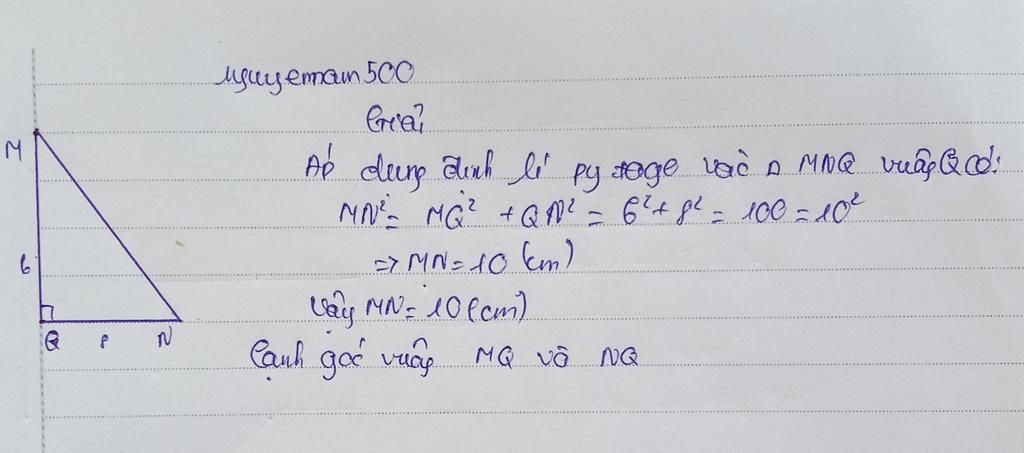 nguyenan500
Giải
M
Áp dụng định lí pytago vào △ MNQ vuông Q có:
MN² = MQ² + QN² = 6² + 8² = 100 = 10²
6
=> MN = 10 (cm)
Vậy MN = 10 (cm)
Q 8 N
Cạnh góc vuông MQ và NQ